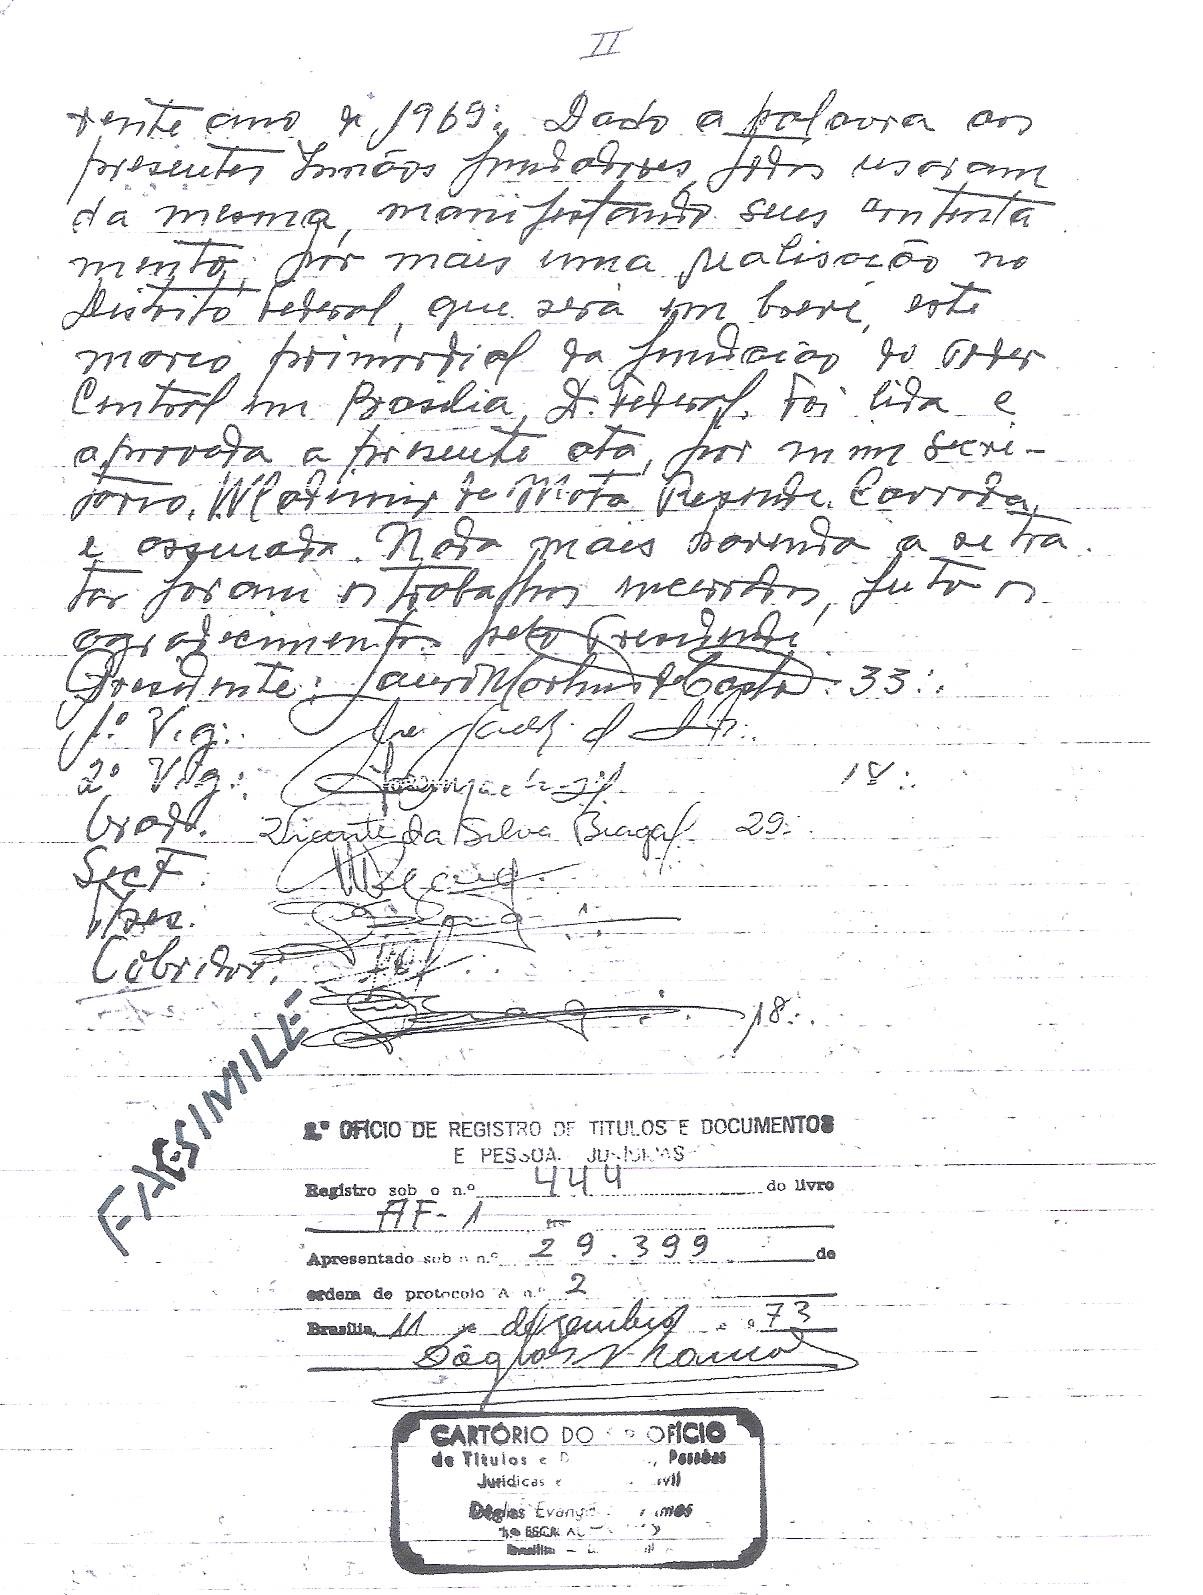 II
rente ano de 1969∴ Dado a palavra aos
presentes Irmãos fundadores, todos usaram
da mesma, manifestando seus contenta
mento, por mais uma realisação no
Distrito Federal, que será em breve, este
marco primordial da fundação do Poder
Central em Brasilia, D. Federal. Foi lida e
aprovada a presente ata, por mim Secre-
tário, Wladimir da Mota Resende. Lavrada
e assinada. Nada mais havendo a se tra
tar foram os trabalhos encerrados, feito os
agradecimentos pelo Presidente.
Presidente: Lauri Martins da Costa 33∴
1º Vig∴
2º Vig∴ 18∴
Orad. Vicente da Silva Braga 29∴
Secr.
Tes.
Cobridor:
18∴
FACSIMILE
2.º OFÍCIO DE REGISTRO DE TITULOS E DOCUMENTOS
E PESSOA JURIDICAS
Registro sob o n.º 444 do livro
AF-1
Apresentado sob o n.º 29.399 de
ordem do protocolo A n.º 2
Brasília, 11 de dezembro 73
CARTÓRIO DO OFÍCIO
de Titulos e Pessôas
Jurídicas e
Brasília